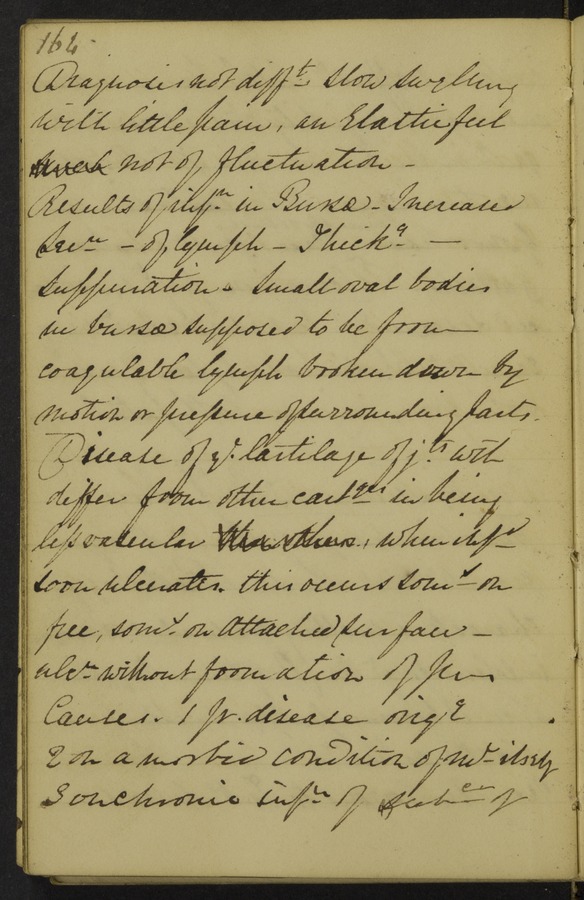 164
Diagnosis not diff.t slow swelling
with little pain, an Elastic feel
not of fluctuation -
Results of inf.m in Bursæ - Increased
Sec.n - of lymph - Thick.g -
suppuration - small oval bodies
in bursæ supposed to be from
coagulable lymph broken down by
motion or pressure of surrounding parts.
Disease of y.e Cartilage of j.ts wch
differ from other cart.ges in being
less vascular than others, when inf.d
soon ulcerates. this occurs som.t on
free, som.t on attached surface -
ulc.n without formation of pus
Causes. 1 fr. disease orig.g
2 on a morbid condition of itself
3 on chronic inf.n of of